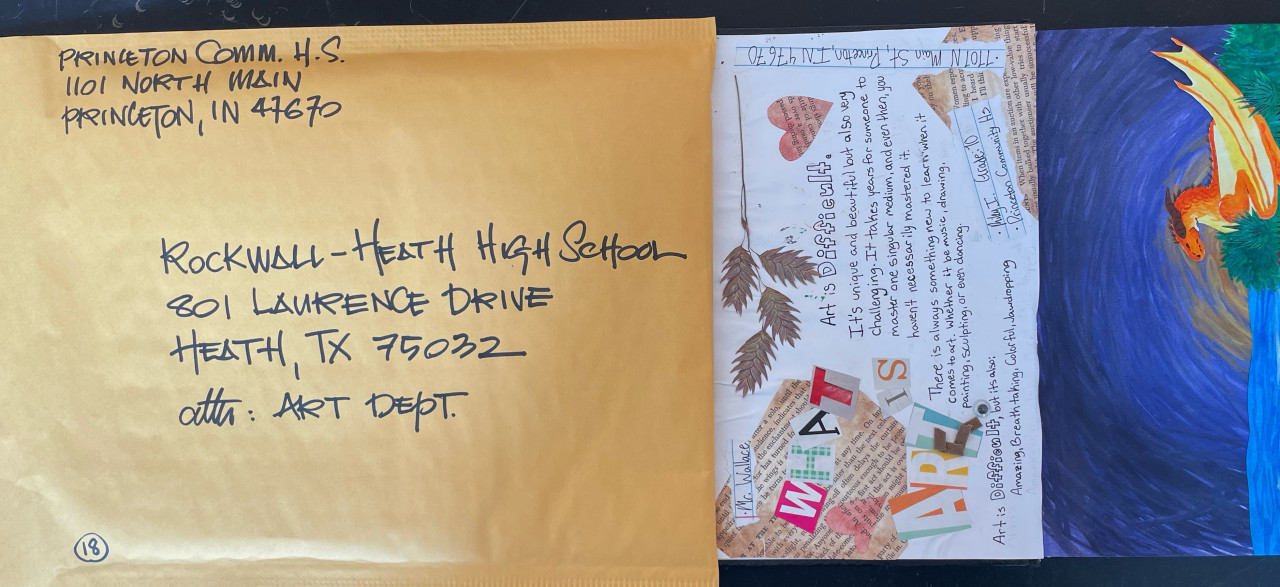 PRINCETON COMM. H.S.
1101 NORTH MAIN
PRINCETON, IN 47670
ROCKWALL-HEATH HIGH SCHOOL
801 LAURENCE DRIVE
HEATH, TX 75032
attn: ART DEPT.
18
• Mr. Wallace,
• 1101 N Main St, Princeton, IN 47670
WHAT IS ART
Art is Difficult.
It's unique and beautiful but also very
challenging. It takes years for someone to
master one singular medium, and even then, you
haven't necessarily mastered it.
There is always something new to learn when it
comes to art. Whether it be music, drawing,
painting, sculpting, or even dancing.
Art is Difficult, but its also:
Amazing, Breathtaking, Colorful, Jawdropping
Grade: 10
• Princeton Community HS